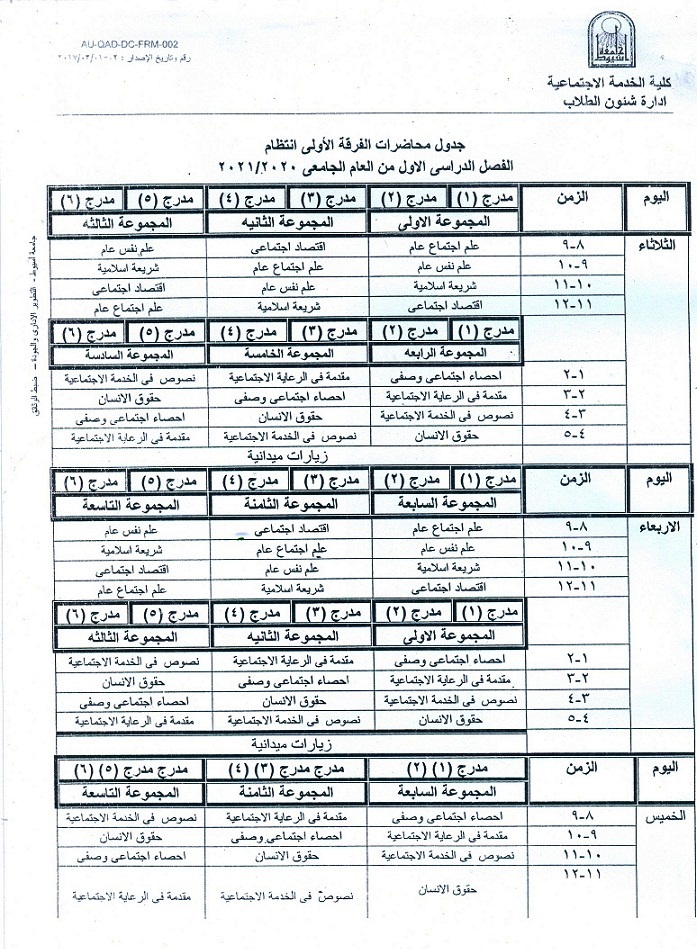 AU-QAD-DC-FRM-002
رقم وتاريخ الإصدار : ٠٢-٢٠١٧/٠٣/٠١
جامعة أسيوط
كلية الخدمة الاجتماعية
ادارة شئون الطلاب
جدول محاضرات الفرقة الأولى انتظام
الفصل الدراسى الاول من العام الجامعى ٢٠٢١/٢٠٢٠
اليوم الزمن مدرج (١) مدرج (٢) مدرج (٣) مدرج (٤) مدرج (٥) مدرج (٦)
المجموعة الاولى المجموعة الثانيه المجموعة الثالثه
الثلاثاء ٨-٩ علم اجتماع عام اقتصاد اجتماعى علم نفس عام
٩-١٠ علم نفس عام علم اجتماع عام شريعة اسلامية
١٠-١١ شريعة اسلامية علم نفس عام اقتصاد اجتماعى
١١-١٢ اقتصاد اجتماعى شريعة اسلامية علم اجتماع عام
مدرج (١) مدرج (٢) مدرج (٣) مدرج (٤) مدرج (٥) مدرج (٦)
المجموعة الرابعه المجموعة الخامسة المجموعة السادسة
١-٢ احصاء اجتماعى وصفى مقدمة فى الرعاية الاجتماعية نصوص فى الخدمة الاجتماعية
٢-٣ مقدمة فى الرعاية الاجتماعية احصاء اجتماعى وصفى حقوق الانسان
٣-٤ نصوص فى الخدمة الاجتماعية حقوق الانسان احصاء اجتماعى وصفى
٤-٥ حقوق الانسان نصوص فى الخدمة الاجتماعية مقدمة فى الرعاية الاجتماعية
زيارات ميدانية
اليوم الزمن مدرج (١) مدرج (٢) مدرج (٣) مدرج (٤) مدرج (٥) مدرج (٦)
المجموعة السابعة المجموعة الثامنة المجموعة التاسعة
الاربعاء ٨-٩ علم اجتماع عام اقتصاد اجتماعى علم نفس عام
٩-١٠ علم نفس عام علم اجتماع عام شريعة اسلامية
١٠-١١ شريعة اسلامية علم نفس عام اقتصاد اجتماعى
١١-١٢ اقتصاد اجتماعى شريعة اسلامية علم اجتماع عام
مدرج (١) مدرج (٢) مدرج (٣) مدرج (٤) مدرج (٥) مدرج (٦)
المجموعة الاولى المجموعة الثانيه المجموعة الثالثه
١-٢ احصاء اجتماعى وصفى مقدمة فى الرعاية الاجتماعية نصوص فى الخدمة الاجتماعية
٢-٣ مقدمة فى الرعاية الاجتماعية احصاء اجتماعى وصفى حقوق الانسان
٣-٤ نصوص فى الخدمة الاجتماعية حقوق الانسان احصاء اجتماعى وصفى
٤-٥ حقوق الانسان نصوص فى الخدمة الاجتماعية مقدمة فى الرعاية الاجتماعية
زيارات ميدانية
اليوم الزمن مدرج (١) (٢) مدرج مدرج (٣) (٤) مدرج مدرج (٥) (٦)
المجموعة السابعة المجموعة الثامنة المجموعة التاسعة
الخميس ٨-٩ احصاء اجتماعى وصفى مقدمة فى الرعاية الاجتماعية نصوص فى الخدمة الاجتماعية
٩-١٠ مقدمة فى الرعاية الاجتماعية احصاء اجتماعى وصفى حقوق الانسان
١٠-١١ نصوص فى الخدمة الاجتماعية حقوق الانسان احصاء اجتماعى وصفى
١١-١٢ حقوق الانسان نصوص فى الخدمة الاجتماعية مقدمة فى الرعاية الاجتماعية
جامعة أسيوط - التطوير الإدارى والجودة - ضبط الوثائق